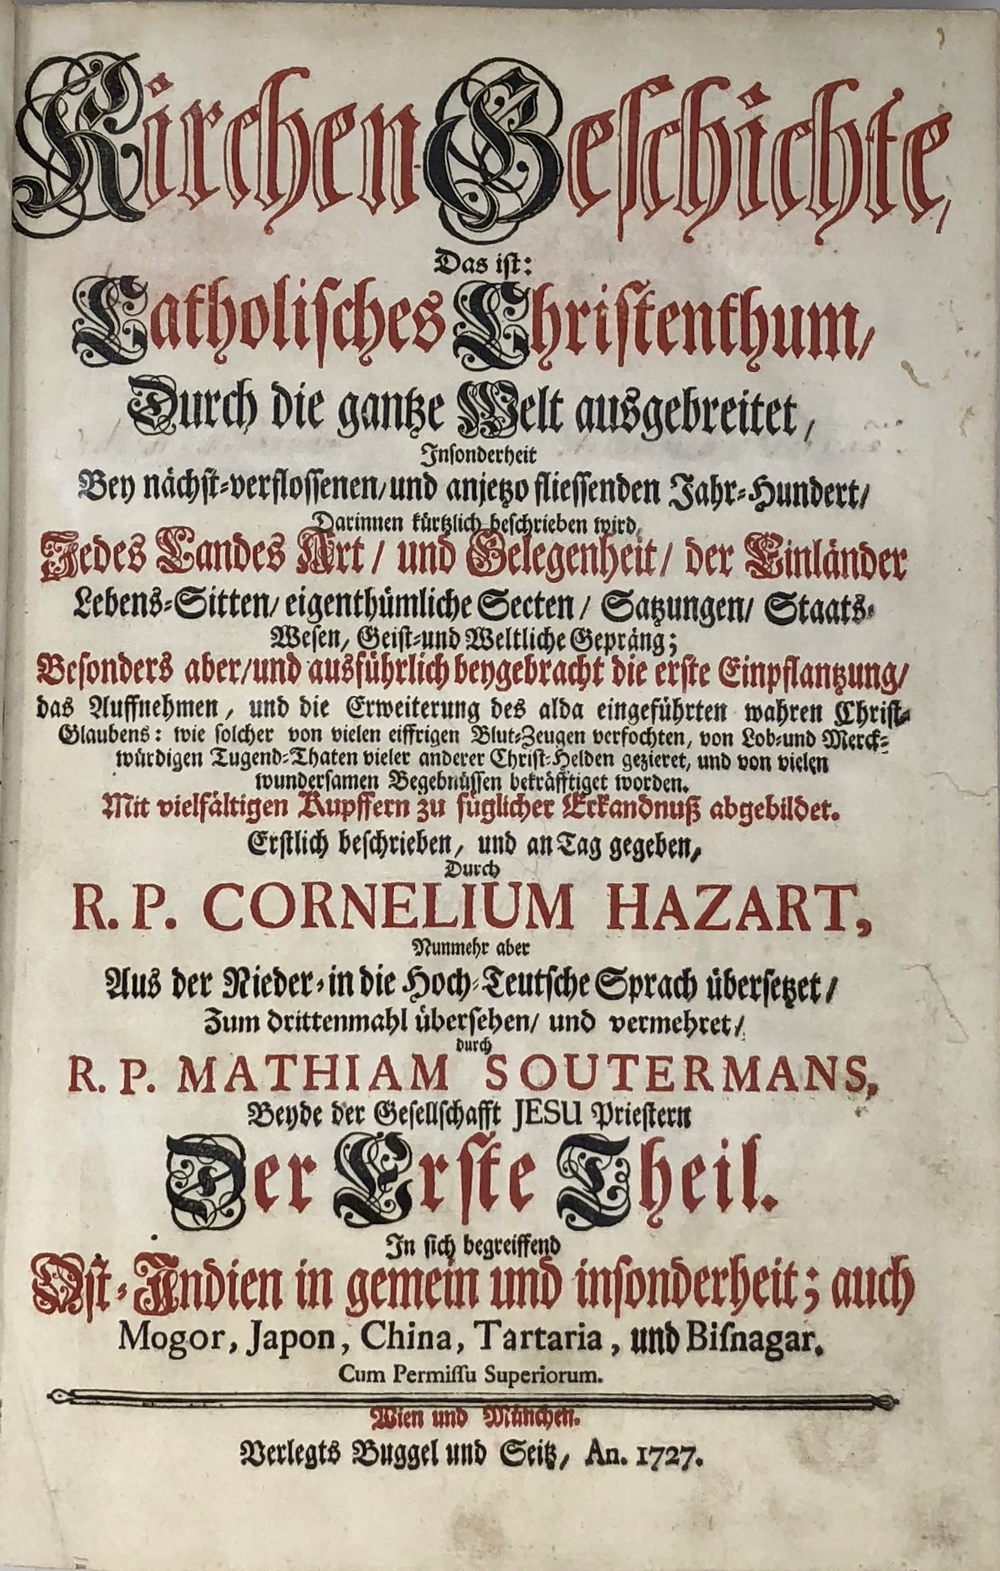 Kirchen-Geschichte,
Das ist:
Catholisches Christenthum,
Durch die gantze Welt ausgebreitet,
Insonderheit
Bey nächst-verflossenen/ und anjetzo fliessenden Jahr-Hundert/
Darinnen kürtzlich beschrieben wird,
Jedes Landes Art/ und Gelegenheit/ der Einländer
Lebens-Sitten/ eigenthümliche Secten/ Satzungen/ Staats-
Wesen, Geist- und Weltliche Gepräng;
Besonders aber/ und ausführlich beygebracht die erste Einpflantzung/
das Auffnehmen, und die Erweiterung des alda eingeführten wahren Christ-
Glaubens: wie solcher von vielen eiffrigen Blut-Zeugen verfochten, von Lob- und Merck-
würdigen Tugend-Thaten vieler anderer Christ-Helden gezieret, und von vielen
wundersamen Begebnüssen bekräfftiget worden.
Mit vielfältigen Kupffern zu füglicher Erkandnuß abgebildet.
Erstlich beschrieben, und an Tag gegeben,
Durch
R. P. CORNELIUM HAZART,
Nunmehr aber
Aus der Nieder- in die Hoch-Teutsche Sprach übersetzet/
Zum drittenmahl übersehen/ und vermehret/
durch
R. P. MATHIAM SOUTERMANS,
Beyde der Gesellschafft JESU Priestern
Der Erste Theil.
In sich begreiffend
Ost-Indien in gemein und insonderheit; auch
Mogor, Japon, China, Tartaria, und Biſnagar.
Cum Permiſſu Superiorum.
Wien und München.
Verlegts Buggel und Seitz, An. 1727.